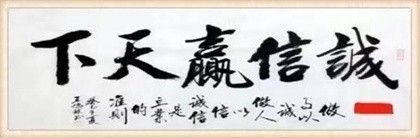 誠信贏天下
做事以诚做人以信诚信是立业的准则